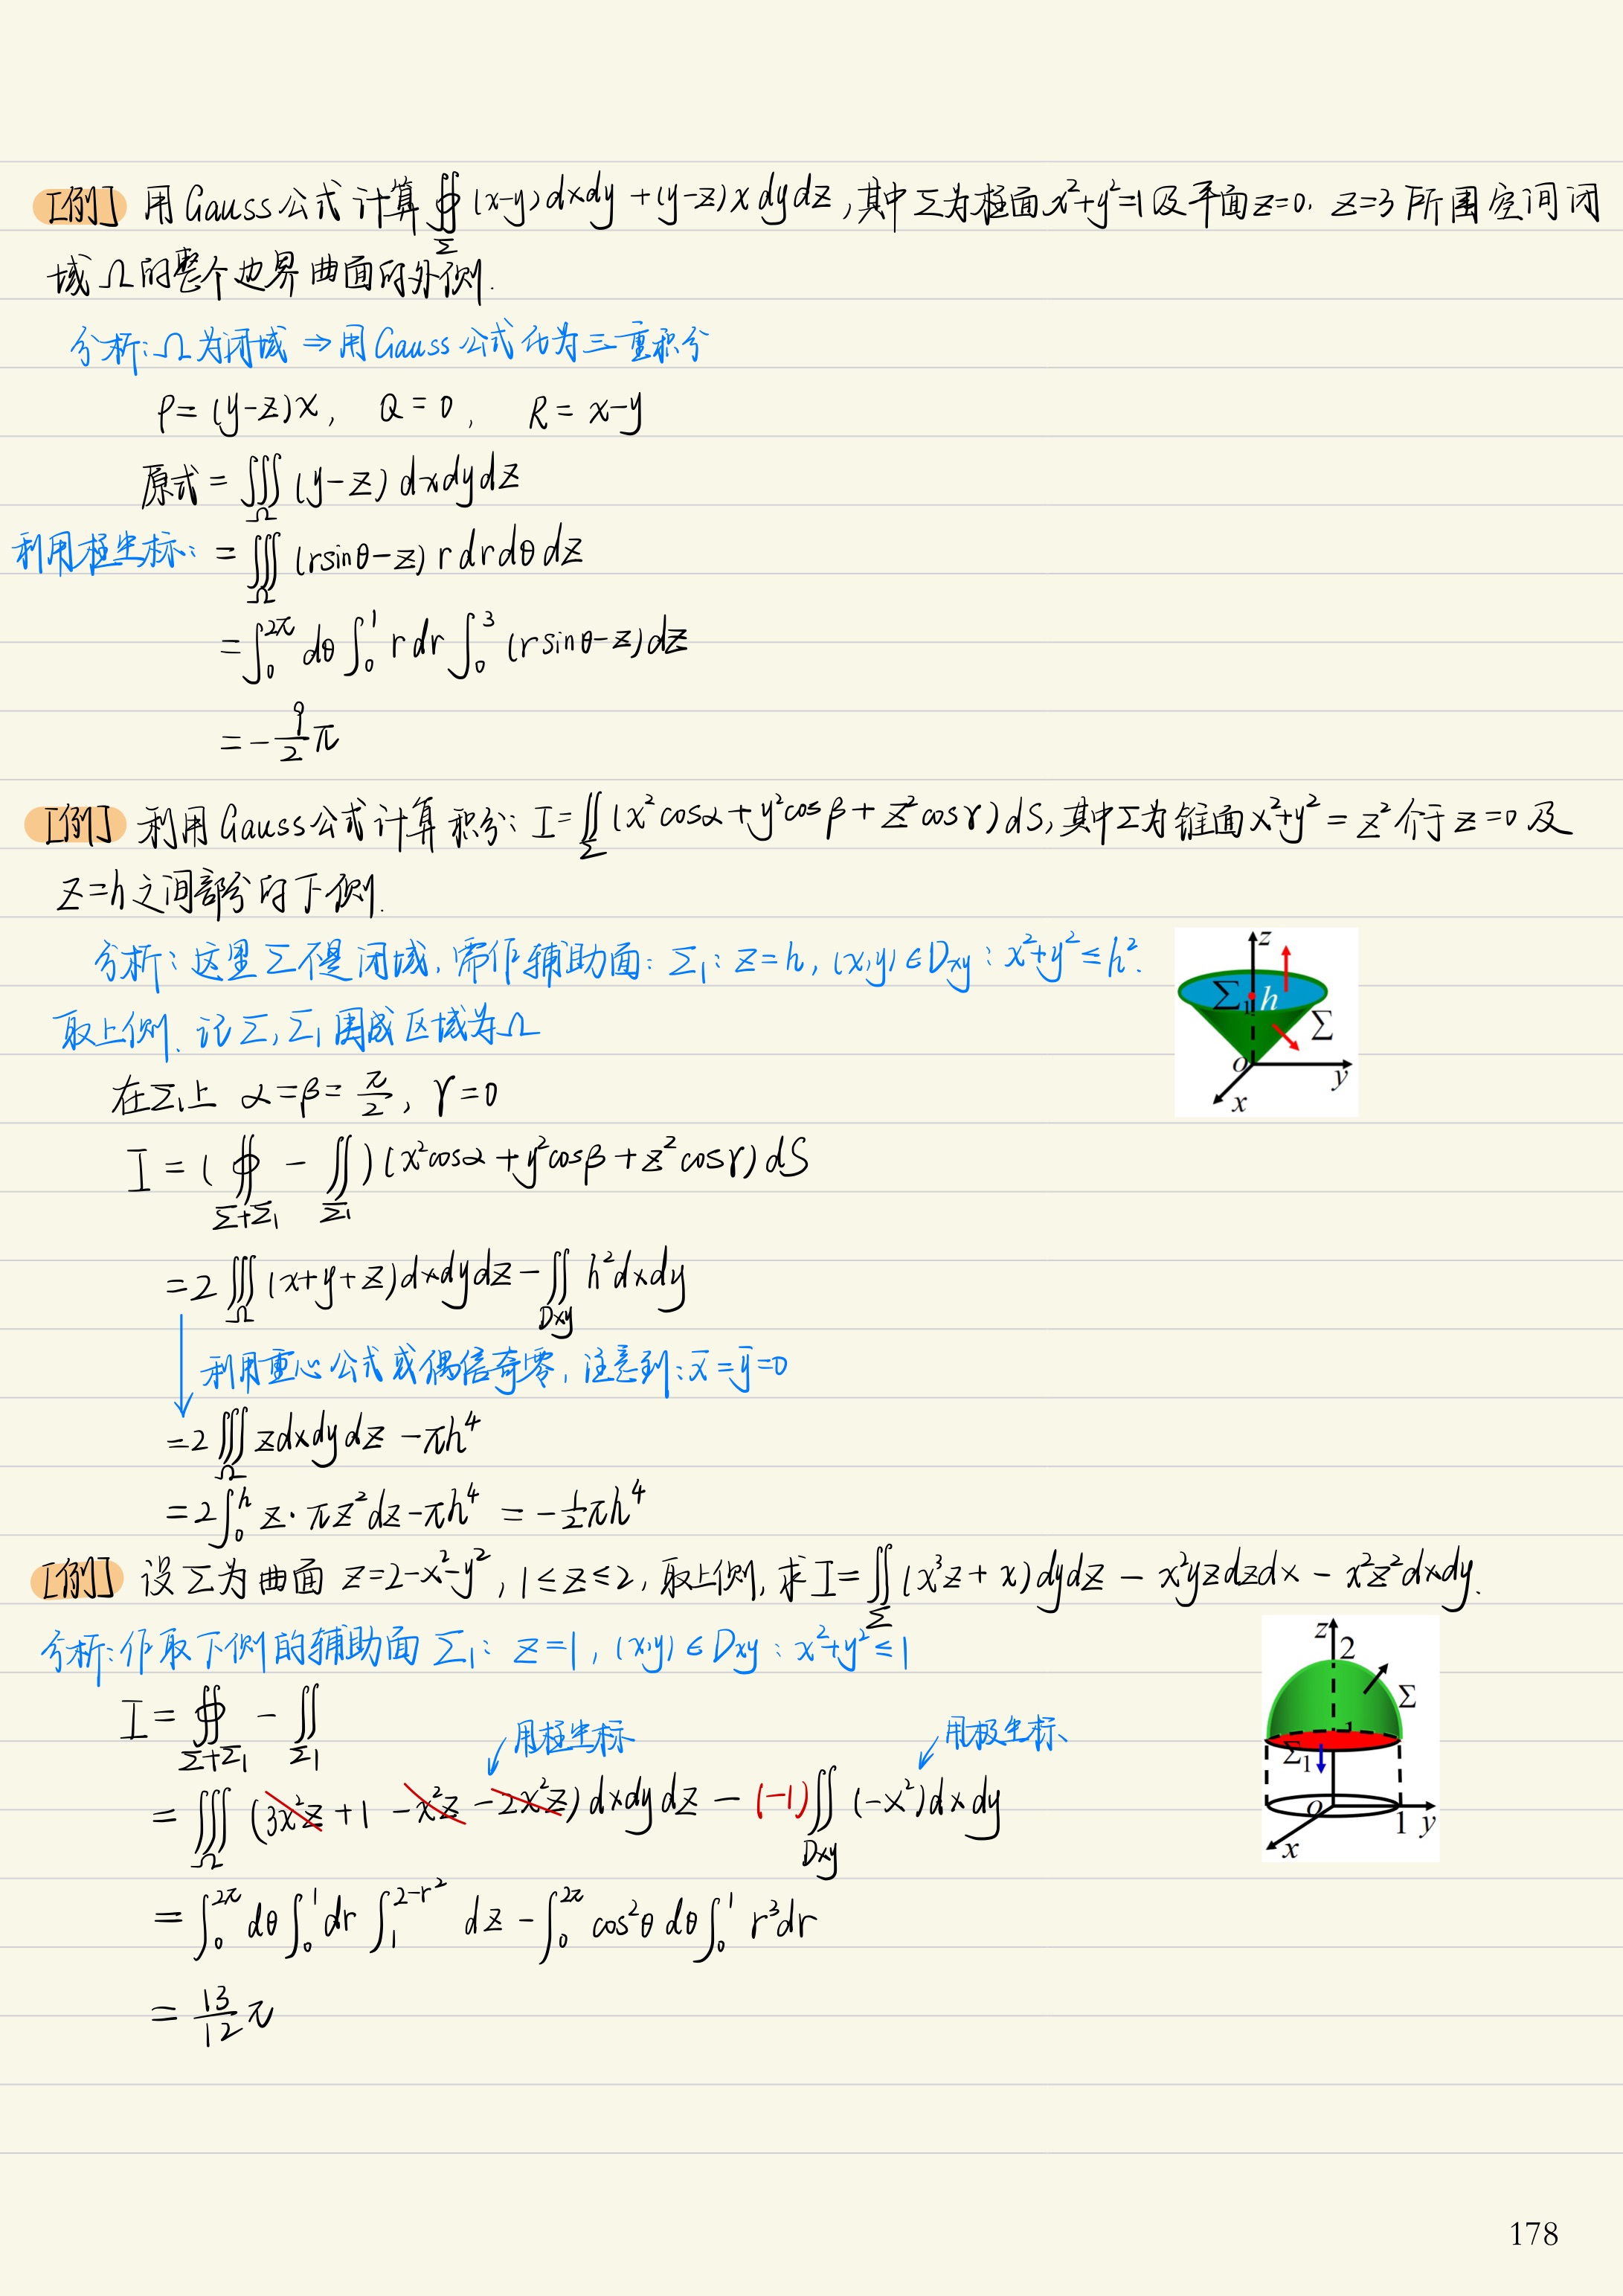 [例] 用Gauss公式计算∯_Σ (x-y)dxdy+(y-z)xdydz,其中Σ为柱面x²+y²=1及平面z=0, z=3所围空间闭
域Ω的整个边界曲面的外侧.
分析:Ω为闭域⇒用Gauss公式化为三重积分
P=(y-z)x, Q=0, R=x-y
原式=∭_Ω (y-z)dxdydz
利用极坐标: =∭_Ω (rsinθ-z) r dr dθ dz
=∫_0^{2π} dθ ∫_0^1 r dr ∫_0^3 (rsinθ-z)dz
=-9/2 π
[例] 利用Gauss公式计算积分: I=∬_Σ (x²cosα+y²cosβ+z²cosγ)dS,其中Σ为锥面x²+y²=z²介于z=0及
z=h之间部分的下侧.
分析:这里Σ不是闭域,需作辅助面: Σ₁: z=h, (x,y)∈Dxy: x²+y²≤h².
取上侧. 记Σ,Σ₁围成区域为Ω
在Σ₁上 α=β=π/2, γ=0
I=(∯_{Σ+Σ₁} - ∬_{Σ₁})(x²cosα+y²cosβ+z²cosγ)dS
=2∭_Ω (x+y+z)dxdydz-∬_{Dxy} h²dxdy
利用重心公式或偶倍奇零,注意到:x̄=ȳ=0
=2∭_Ω zdxdydz-πh⁴
=2∫_0^h z·πz²dz-πh⁴ = -1/2 πh⁴
z
Σ₁ h
Σ
o
y
x
[例] 设Σ为曲面 z=2-x²-y², 1≤z≤2,取上侧,求I=∬_Σ (x³z+x)dydz-x²yzdzdx-x²z²dxdy.
分析:作取下侧的辅助面Σ₁: z=1, (x,y)∈Dxy: x²+y²≤1
I=∯_{Σ+Σ₁} - ∬_{Σ₁}
用极坐标 用极坐标
=∭_Ω (3x²z+1-x²z-2x²z)dxdydz-(-1)∬_{Dxy} (-x²)dxdy
=∫_0^{2π} dθ ∫_0^1 dr ∫_1^{2-r²} dz-∫_0^{2π} cos²θ dθ ∫_0^1 r³dr
=13/12 π
z
2
Σ
1
Σ₁
o
1 y
x
178